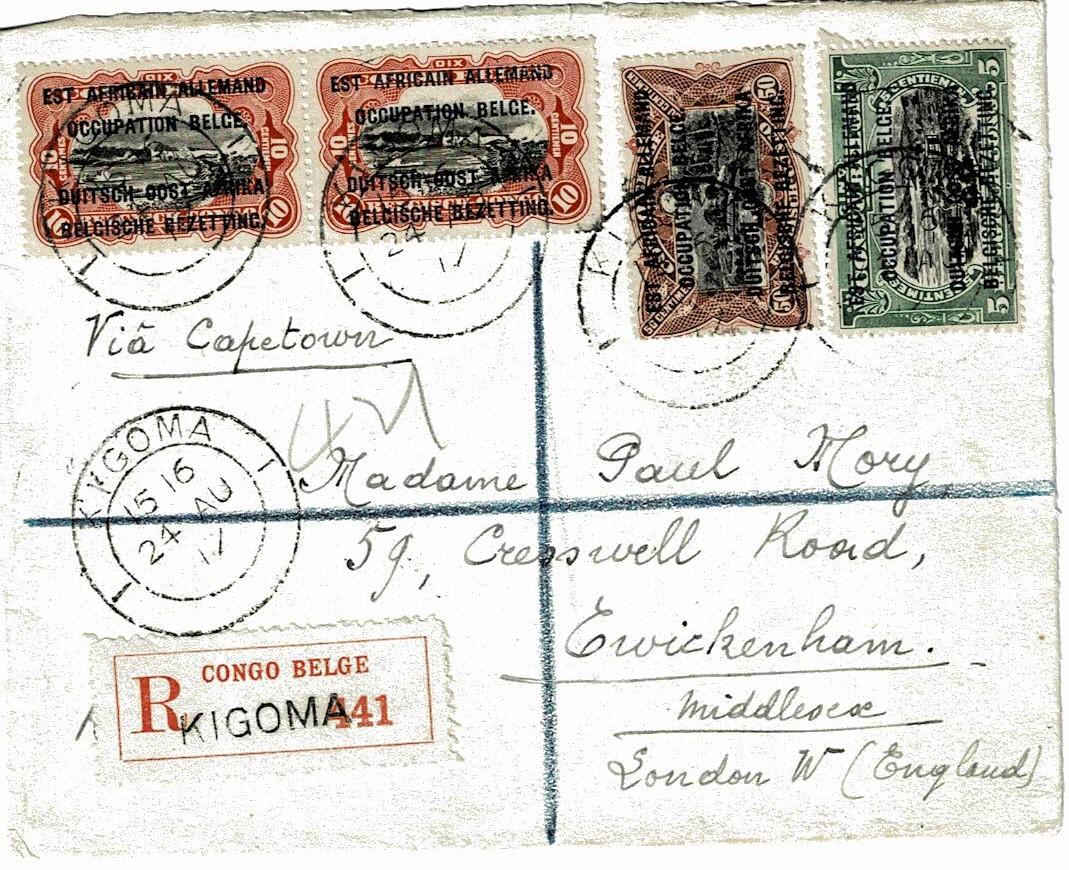 DIX
EST AFRICAIN ALLEMAND
OCCUPATION BELGE.
10
CENTIMES
10
DUITSCH OOST AFRIKA
BELGISCHE BEZETTING.
10
DIX
EST AFRICAIN ALLEMAND
OCCUPATION BELGE.
10
10
DUITSCH OOST AFRIKA
BELGISCHE BEZETTING.
10
24
17
50
EST AFRICAIN ALLEMAND
OCCUPATION BELGE.
DUITSCH OOST AFRIKA
BELGISCHE BEZETTING.
50
5
EST AFRICAIN ALLEMAND
OCCUPATION BELGE.
DUITSCH OOST AFRIKA
BELGISCHE BEZETTING.
5
Viâ Capetown
KIGOMA
15 16
24 AU
17
Madame Paul Mory,
59, Cresswell Road,
Twickenham.
Middlesex
London W (England)
CONGO BELGE
R KIGOMA 441